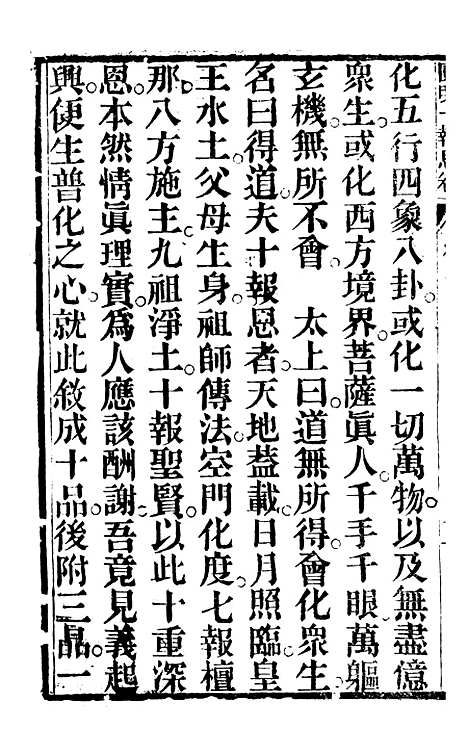 化五行四象八卦。或化一切萬物。以及無盡億
衆生。或化西方境界。菩薩眞人。千手千眼萬軀
玄機。無所不會　太上曰。道無所得。會化衆生。
名曰得道。夫十報恩者。天地葢載。日月照臨。皇
王水土。父母生身。祖師傳法。空門化度。七報檀
那。八方施主。九祖淨土。十報聖賢。以此十重深
恩。本然情眞理實。爲人應該酬謝。吾竟見義起
興。便生普化之心。就此敘成十品。後附三品。一